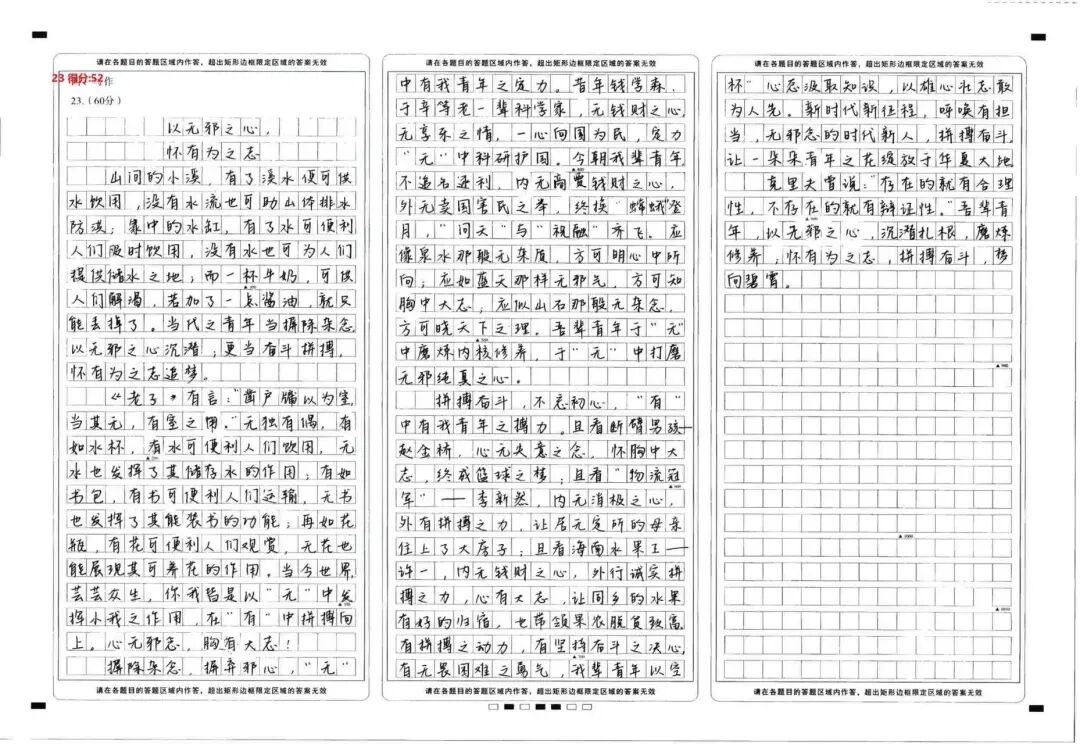 请在各题目的答题区域内作答，超出矩形边框限定区域的答案无效
23 得分:52
写作
23.（60分）
以无邪之心，
怀有为之志
山间的小溪，有了溪水便可供
水饮用，没有水流也可助山体排水
防洪；家中的水缸，有了水可便利
人们随时饮用，没有水也可为人们
提供储水之地；而一杯牛奶，可供
人们解渴，若加了一点酱油，就只
能丢掉了。当代之青年当摒除杂念
以无邪之心沉潜；更当奋斗拼搏，
怀有为之志追梦。
《老子》有言："凿户牖以为室，
当其无，有室之用。"无独有偶，有
如水杯，有水可便利人们饮用，无
水也发挥了其储存水的作用；有如
书包，有书可便利人们运输，无书
也发挥了其能装书的功能；再如花
瓶，有花可便利人们观赏，无花也
能展现其可养花的作用。当今世界，
芸芸众生，你我皆是以"无"中发
挥小我之作用，在"有"中拼搏向
上。心无邪念，胸有大志！
摒除杂念，摒弃邪心，"无"
请在各题目的答题区域内作答，超出矩形边框限定区域的答案无效
请在各题目的答题区域内作答，超出矩形边框限定区域的答案无效
中有我青年之定力。昔年钱学森、
于辛等老一辈科学家，无钱财之心，
无享乐之情，一心向国为民，定力
"无"中科研护国。今朝我辈青年
不追名逐利，内无商贾钱财之心，
外无卖国害民之举，终换"嫦娥"登
月，"问天"与"祝融"齐飞。应
像泉水那般无杂质，方可明心中所
向；应如蓝天那样无邪气，方可知
胸中大志；应似山石那般无杂念，
方可晓天下之理。吾辈青年于"无"
中磨炼内核修养，于"无"中打磨
无邪纯真之心。
拼搏奋斗，不忘初心，"有"
中有我青年之搏力。且看断臂男孩—
赵金桥，心无失意之念，怀胸中大
志，终成篮球之梦；且看"物流冠
军"——李新然，内无消极之心，
外有拼搏之力，让居无定所的母亲
住上了大房子；且看海南水果王——
许一，内无钱财之心，外行诚实拼
搏之力，心有大志，让同乡的水果
有好的归宿，也带领果农脱贫致富
有拼搏之动力，有坚持奋斗之决心，
有无畏困难之勇气，我辈青年以空
请在各题目的答题区域内作答，超出矩形边框限定区域的答案无效
请在各题目的答题区域内作答，超出矩形边框限定区域的答案无效
杯"心态汲取知识，以雄心壮志敢
为人先。新时代新征程，呼唤有担
当，无邪念的时代新人，拼搏奋斗，
让一朵朵青年之花绽放于华夏大地
克里夫曾说："存在的就有合理
性，不存在的就有辩证性。"吾辈青
年，以无邪之心，沉潜扎根，磨炼
修养；怀有为之志，拼搏奋斗，梦
向碧霄。
请在各题目的答题区域内作答，超出矩形边框限定区域的答案无效